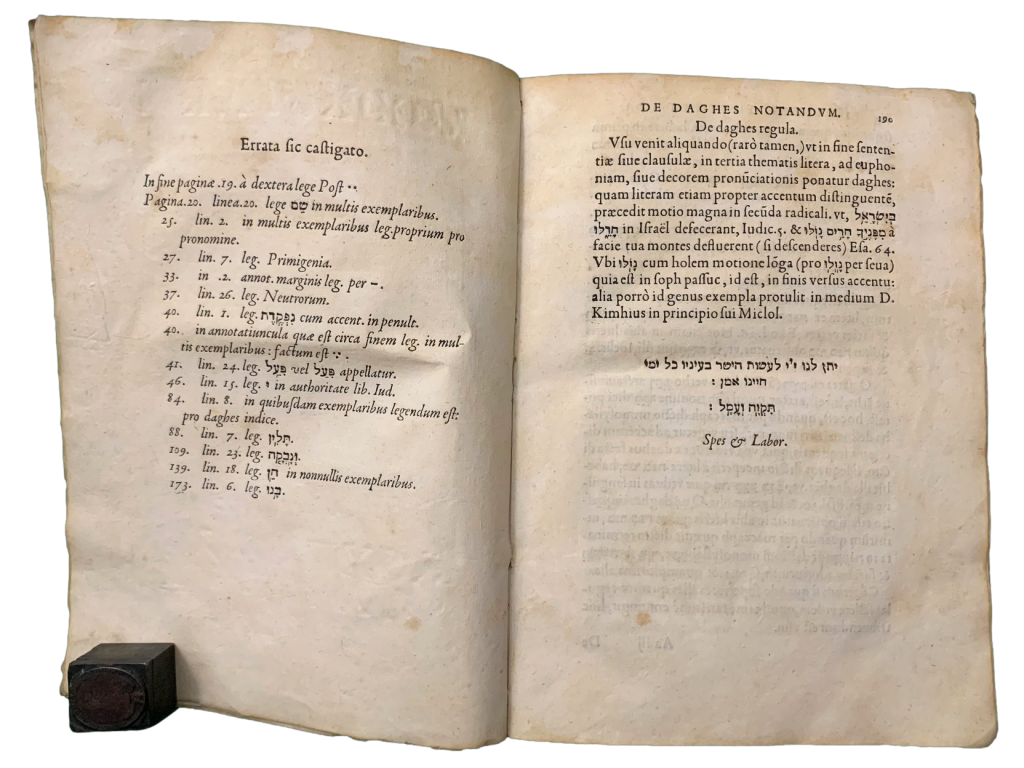 Errata ſic caſtigato.
In fine paginæ .19. à dextera lege Poſt ··
Pagina.20. linea.20. lege שֵׁם in multis exemplaribus.
25. lin. 2. in multis exemplaribus leg.proprium pro
pronomine.
27. lin. 7. leg. Primigenia.
33. in .2. annot. marginis leg. per −.
37. lin. 26. leg. Neutrorum.
40. lin. 1. leg. נִפְקֶדֶת cum accent. in penult.
40. in annotatiuncula quæ eſt circa finem leg. in mul-
tis exemplaribus: factum eſt
41. lin. 24. leg. פָּעַל vel פֹּעַל appellatur.
46. lin. 15. leg. י in authoritate lib. Iud.
84. lin. 8. in quibuſdam exemplaribus legendum eſt:
pro daghes indice.
88. lin. 7. leg.
109. lin. 23. leg.
139. lin. 18. leg. הֵן in nonnullis exemplaribus.
173. lin. 6. leg. בָּנוּ.
DE DAGHES NOTANDVM. 190
De daghes regula.
Vſu venit aliquando (rarò tamen,) vt in fine ſenten-
tiæ ſiue clauſulæ, in tertia thematis litera, ad eupho-
niam, ſiue decorem pronũciationis ponatur daghes:
quam literam etiam propter accentum diſtinguentẽ,
præcedit motio magna in ſecũda radicali. vt, בְּיִשְׂרָאֵל
חָדֵלּוּ in Iſraël defecerant, Iudic.5. & מִפָּנֶיךָ הָרִים נָזֹלּוּ à
facie tua montes defluerent (ſi deſcenderes) Eſa. 64.
Vbi נָזֹלּוּ cum holem motione lõga (pro נָזְלוּ per ſeua)
quia eſt in ſoph paſſuc, id eſt, in finis verſus accentu:
alia porrò id genus exempla protulit in medium D.
Kimhius in principio ſui Miclol.
יתן לנו י״י לעשות הישר בעיניו כל ימי
חיינו אמן :
תִּקְוָה וְעָמָל :
Spes & Labor.